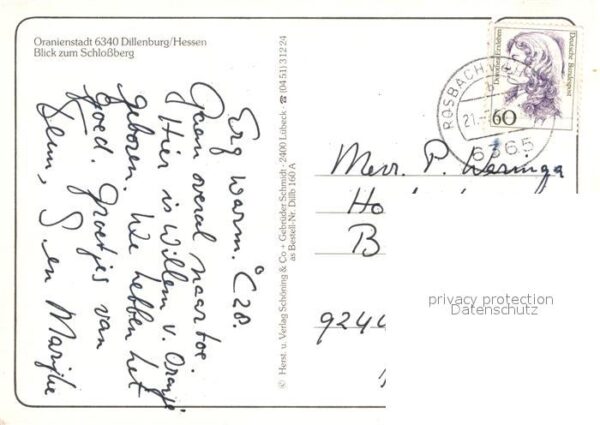 Oranienstadt 6340 Dillenburg/Hessen
Blick zum Schloßberg
Erg warm. °C 28.
Gaan overal naar toe.
Hier is Willem v. Oranje
geboren. We hebben het
goed. Groetjes van
en Marijke
© Herst. u. Verlag Schöning & Co + Gebrüder Schmidt · 2400 Lübeck · ☎ (0451) 31224
as Bestell-Nr. Dillb 160 A
Dorothea Erxleben
Deutsche Bundespost
60
ROSBACH V
b
21.-7
6365
Mevr. P. Waringa
Ho
B
9244
privacy protection
Datenschutz